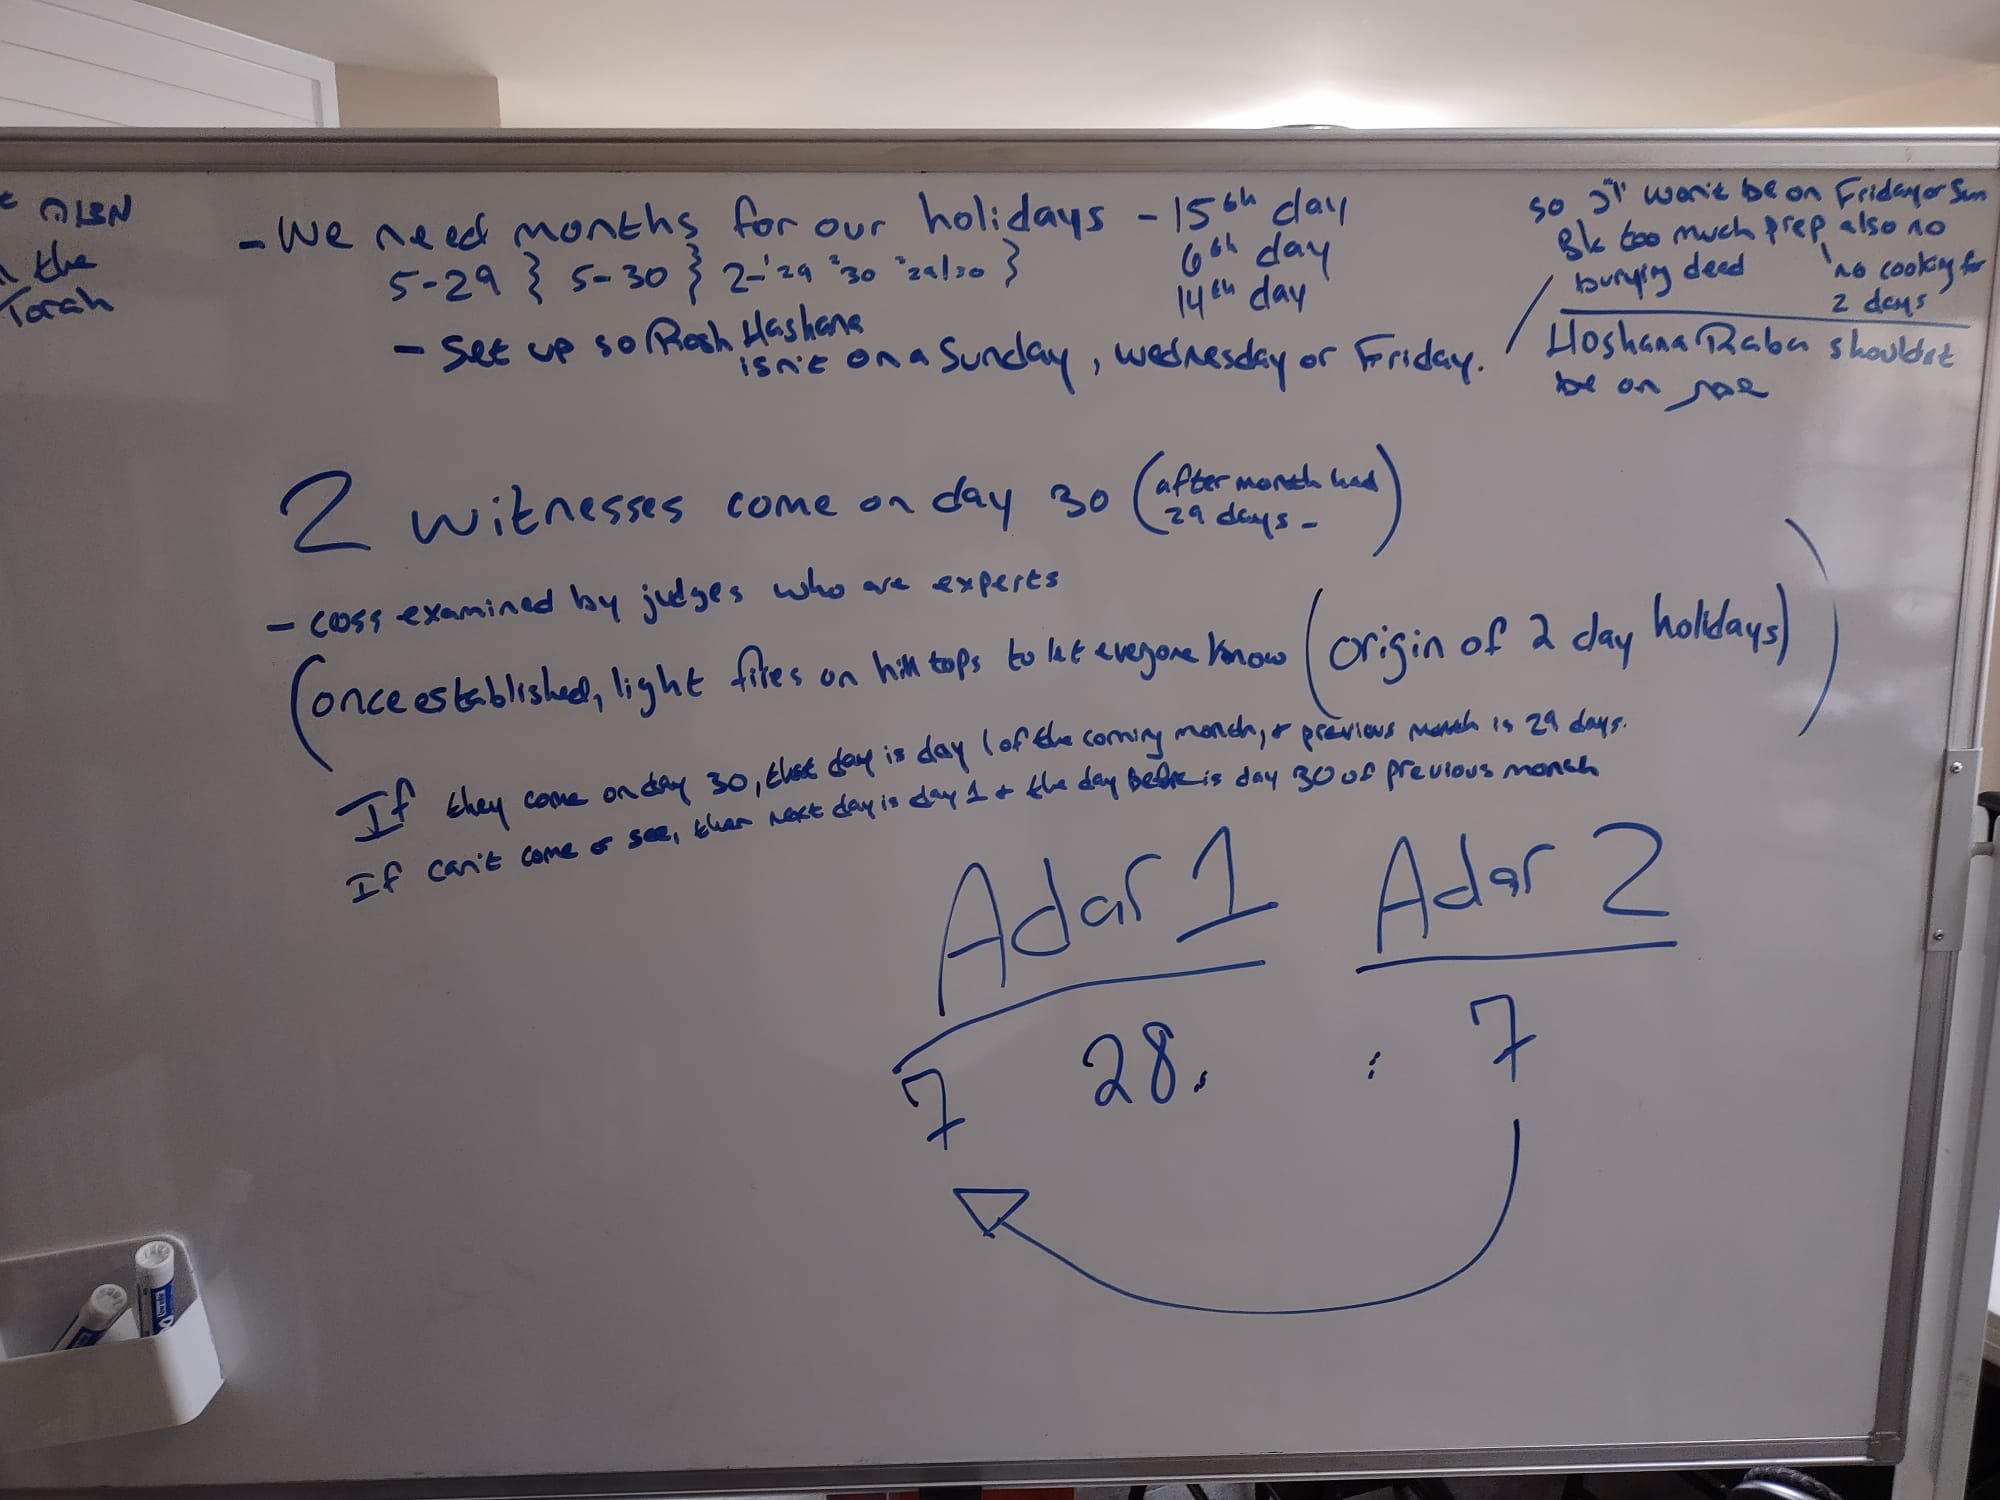 the
Torah
- We need months for our holidays - 15th day
6th day
14th day
5-29 } 5-30 } 2- 29 30 29/30 }
- Set up so Rosh Hashana
isn't on a Sunday, Wednesday or Friday.
so won't be on Friday or Sun
Bk too much prep, also no
burying dead
no cooking for
2 days
Hoshana Raba shouldnt
be on שבת
2 witnesses come on day 30 (after month had
29 days -)
- coss examined by judges who are experts
(once established, light fires on hill tops to let everyone know (origin of 2 day holidays))
If they come on day 30, that day is day 1 of the coming month, + previous month is 29 days.
If can't come or see, then next day is day 1 + the day before is day 30 of previous month
Adar 1 Adar 2
7 28 7